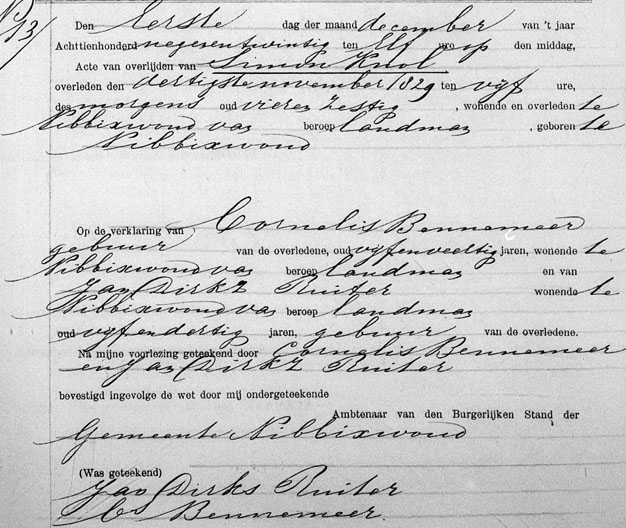 No 13/
Den Eerste dag der maand december van 't jaar
Achttienhonderd negenentwintig ten Elf ure op den middag,
Acte van overlijden van Simon Knol
overleden den dertigste november 1829 ten vijf ure,
des morgens oud vierenzestig, wonende en overleden te
Nibbixwoud van beroep landman, geboren te
Nibbixwoud
Op de verklaring van Cornelis Bennemeer
gebuur van de overledene, oud vijfenveertig jaren, wonende te
Nibbixwoud van beroep landman en van
Jan Dirksz Ruiter wonende te
Nibbixwoud van beroep landman
oud vijfendertig jaren, gebuur van de overledene.
Na mijne voorlezing geteekend door Cornelis Bennemeer
en Jan Dirksz Ruiter
bevestigd ingevolge de wet door mij ondergeteekende
Ambtenaar van den Burgerlijken Stand der
Gemeente Nibbixwoud
(Was geteekend)
Jan Dirks Ruiter
Cs Bennemeer